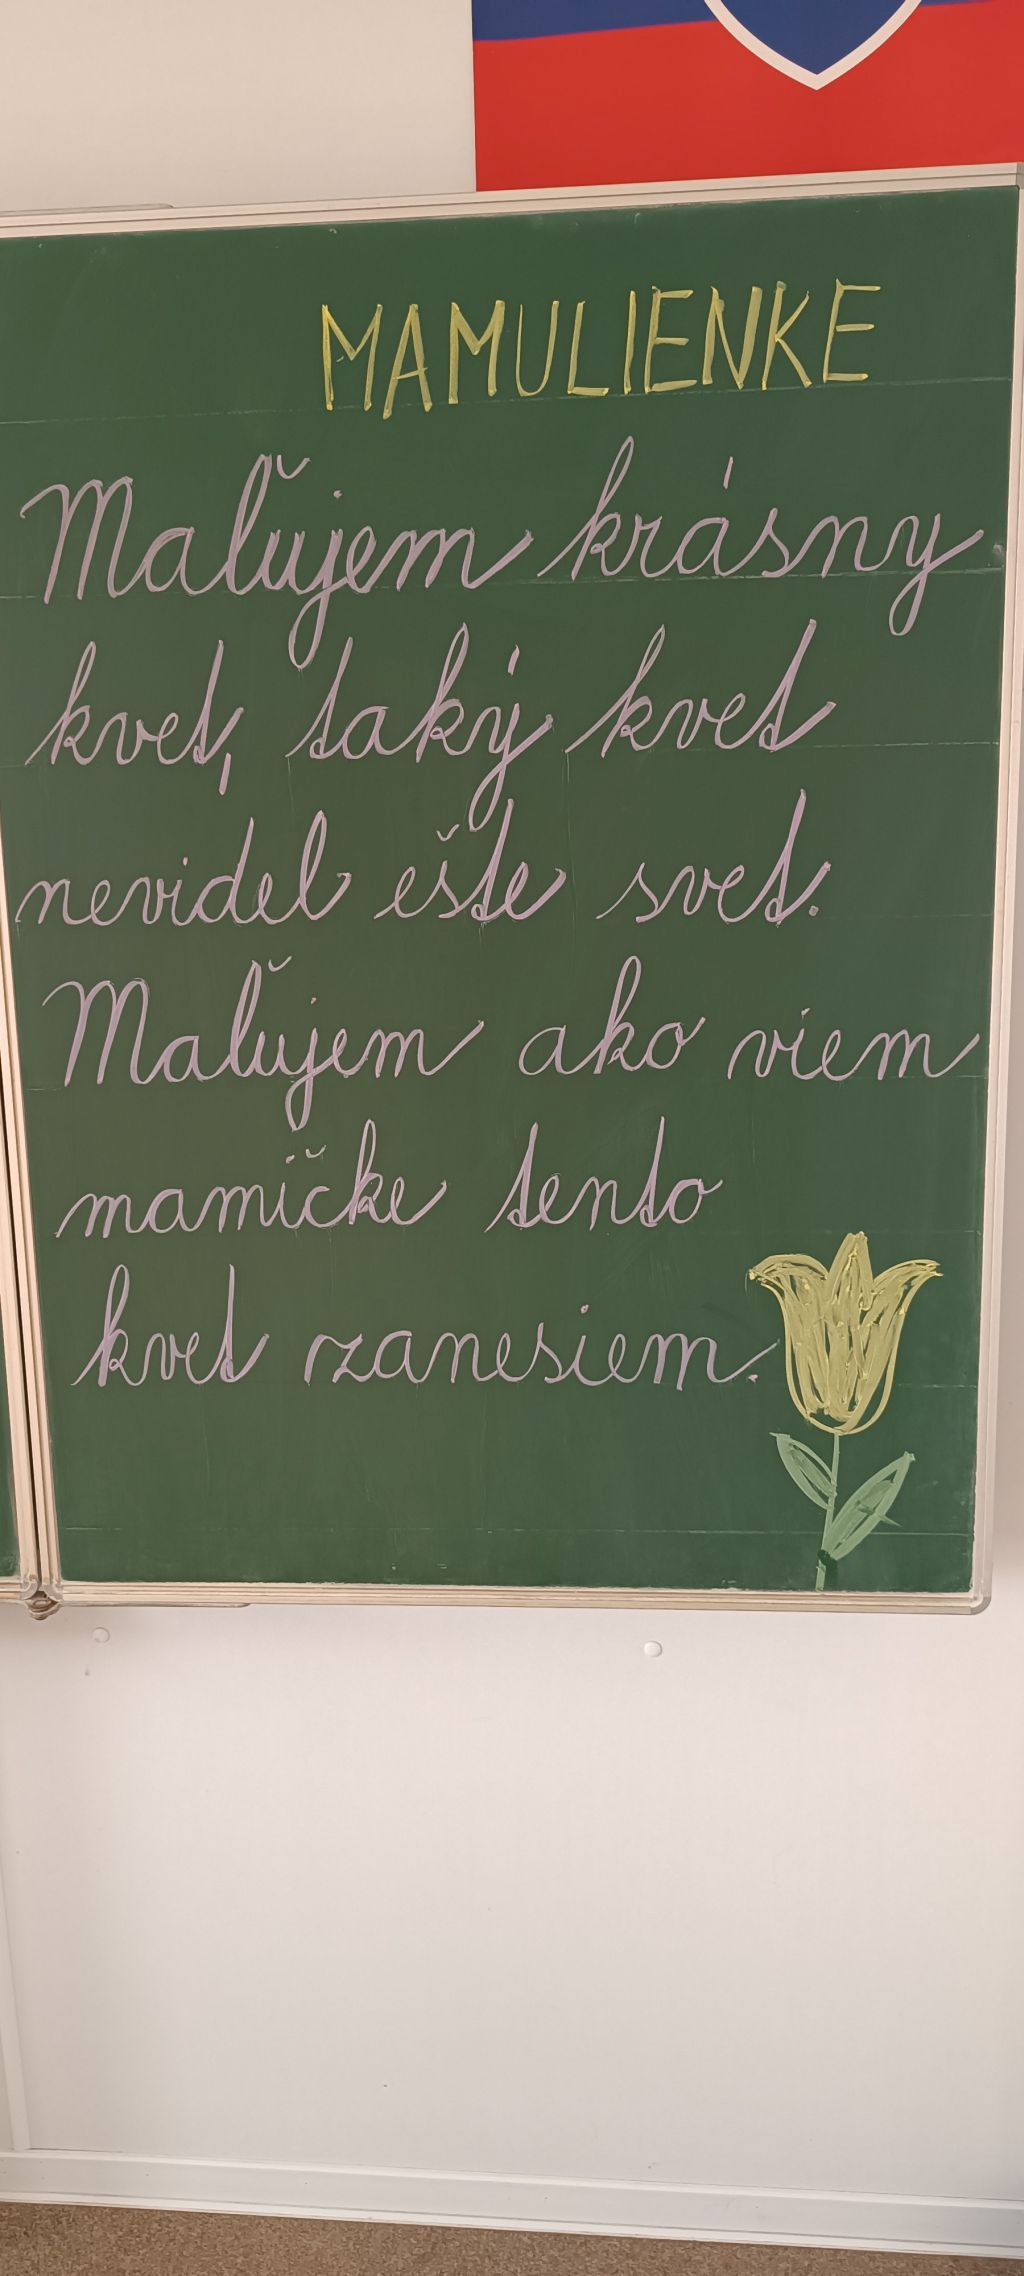 MAMULIENKE
Maľujem krásny
kvet, taký kvet
nevidel ešte svet.
Maľujem ako viem
mamičke tento
kvet zanesiem.